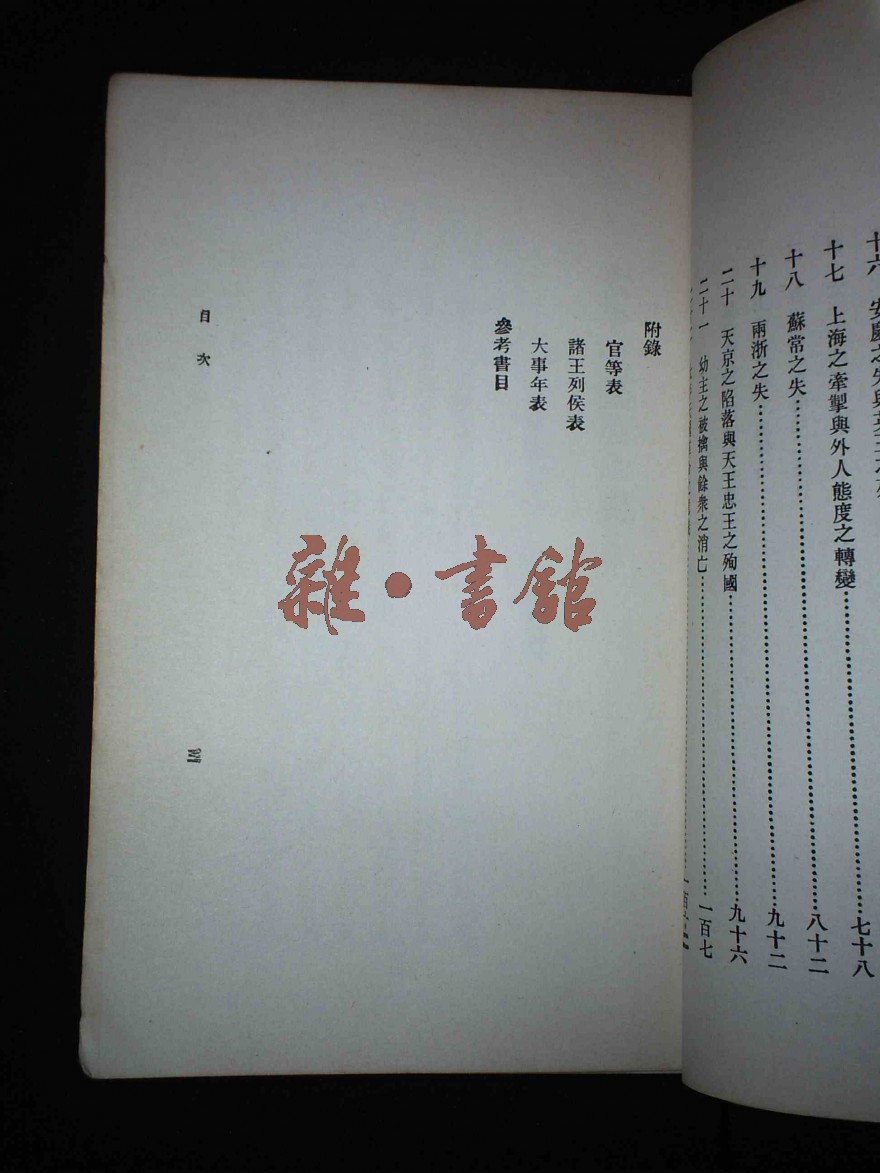 十七 上海之牽掣與外人態度之轉變……七十八
十八 蘇常之失……八十二
十九 兩浙之失……九十二
二十 天京之陷落與天王忠王之殉國……九十六
二十一 幼主之被擒與餘衆之消亡……一百七
附錄
官等表
諸王列侯表
大事年表
參考書目
目次
雜·書館